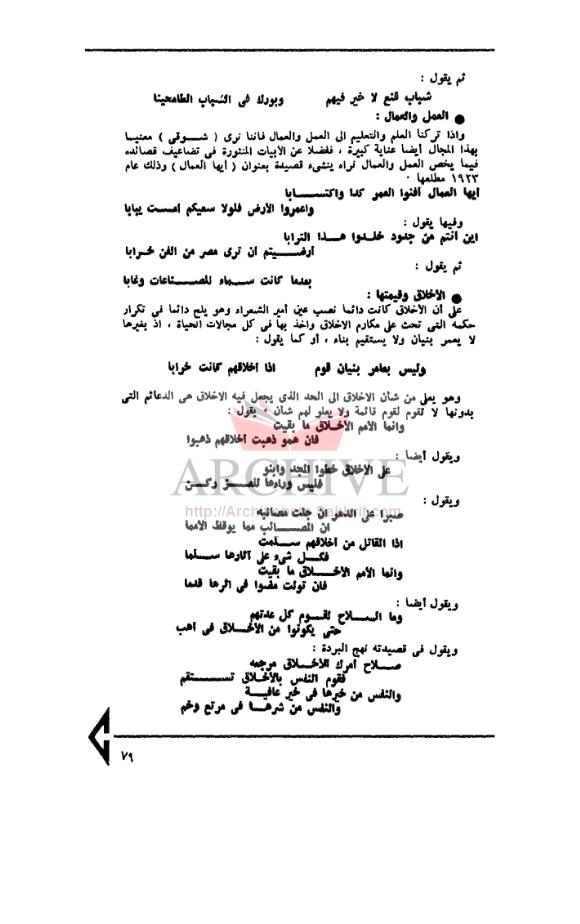 ثم يقول :
شباب قنع لا خير فيهم وبورك فى الشباب الطامحينا
● العمل والعمال :
واذا تركنا العلم والتعليم الى العمل والعمال فاننا نرى ( شــوقى ) معنيـا
بهذا المجال أيضا عناية كبيرة ، ففضلا عن الأبيات المنثورة فى تضاعيف قصائده
فيما يخص العمل والعمال نراه ينشىء قصيدة بعنوان ( أيها العمال ) وذلك عام
١٩٢٣ مطلعها ٠
أيها العمال أفنوا العمر كدا واكتســـابا
واعمروا الأرض فلولا سعيكم أمست يبابا
وفيها يقول :
أين أنتم من جدود خلـدوا هـــذا الترابا
أرضـــيتم أن ترى مصر من الفن خـرابا
ثم يقول :
بعدما كانت ســماء للصـــناعات وغابا
● الأخلاق وقيمتها :
على أن الأخلاق كانت دائما نصب عين أمير الشعراء وهو يلح دائما فى تكرار
حكمه التى تحث على مكارم الاخلاق واخذ بها فى كل مجالات الحياة ، اذ بغيرها
لا يعمر بنيان ولا يستقيم بناء ، أو كما يقول :
وليس بعامر بنيان قوم اذا أخلاقهم كانت خرابا
وهو يعلى من شأن الاخلاق الى الحد الذى يجعل فيه الاخلاق هى الدعائم التى
بدونها لا تقوم لقوم قائمة ولا يعلو لهم شأن ٠ يقول :
وانما الأمم الأخــلاق ما بقيت
فان همو ذهبت أخلاقهم ذهبوا
ويقول أيضا :
على الأخلاق خطوا المجد وابنو
فليس وراءها للعــز ركــن
ويقول :
صبرا على الدهر ان جلت مصائبه
ان المصــــائب مما يوقظ الأمما
اذا القاتل من أخلاقهم ســلمت
فكــل شىء على آثارها ســلما
وانما الأمم الأخــلاق ما بقيت
فان تولت مضوا فى اثرها قدما
ويقول أيضا :
وما الســلاح لقــوم كل عدتهم
حتى يكونوا من الأخــلاق فى أهب
ويقول فى قصيدته نهج البردة :
صــلاح أمرك للأخــلاق مرجعه
فقوم النفس بالأخلاق تســـتقم
والنفس من خيرها فى خير عافيــة
والنفس من شرهــا فى مرتع وخم
٧٩
ARCHIVE